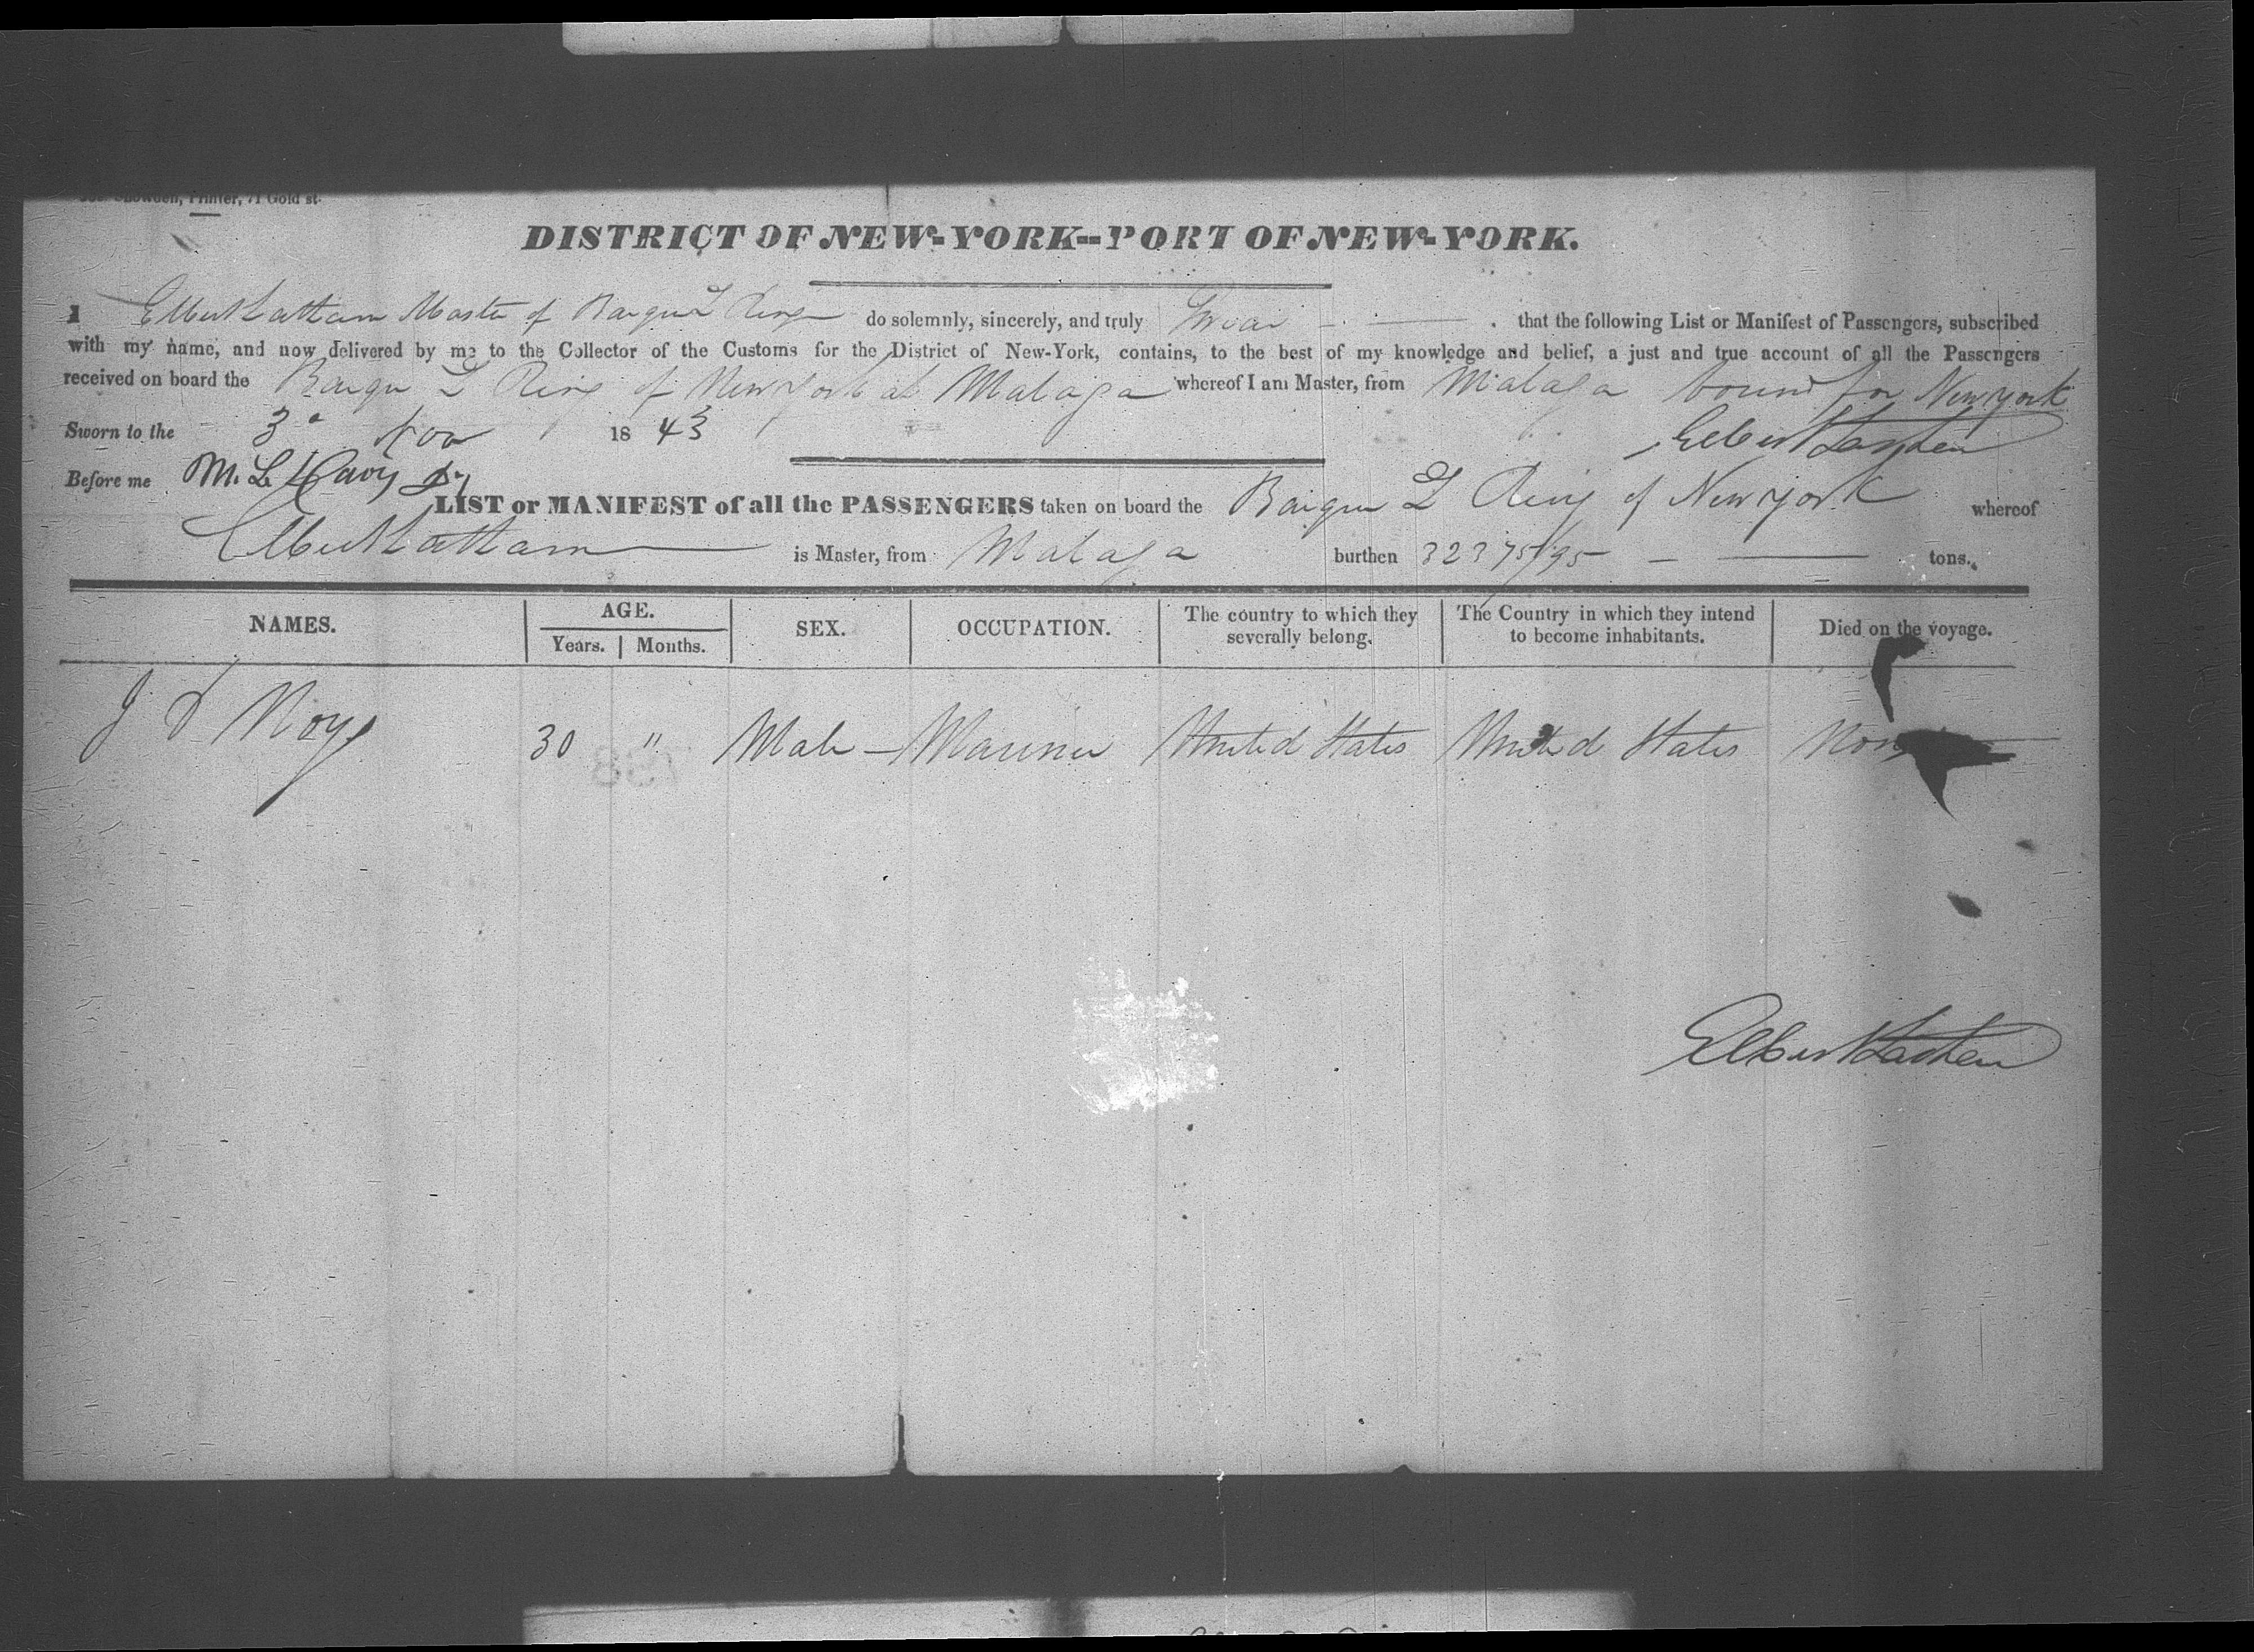 Snowden, Printer, 71 Gold st.
DISTRICT OF NEW-YORK--PORT OF NEW-YORK.
I Elbert Latham Master of Barque Z Ring do solemnly, sincerely, and truly Swear that the following List or Manifest of Passengers, subscribed
with my name, and now delivered by me to the Collector of the Customs for the District of New-York, contains, to the best of my knowledge and belief, a just and true account of all the Passengers
received on board the Barque Z Ring of New York at Malaga whereof I am Master, from Malaga bound for New york
Sworn to the 3d Nov 1843 Elbert Latham
Before me M. L.
LIST or MANIFEST of all the PASSENGERS taken on board the Barque Z Ring of New york whereof
Elbert Latham is Master, from Malaga burthen 323 75/95 tons.
NAMES. AGE. SEX. OCCUPATION. The country to which they severally belong. The Country in which they intend to become inhabitants. Died on the voyage.
Years. Months.
J Noye 30 " Male Mariner United States United States None
Elbert Latham